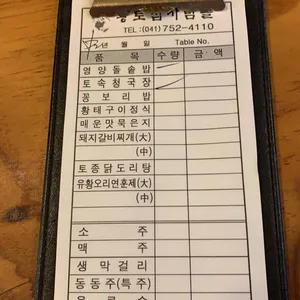 TEL:(041)752-4110
년 월 일 Table No.
품 목 수량 금 액
영양돌솥밥
토속청국장
꽁보리밥
황태구이정식
매운맛묵은지
돼지갈비찌개(大)
(中)
토종닭도리탕
유황오리연훈제(大)
(中)
소 주
맥 주
생막걸리
동동주(특주)
음료수